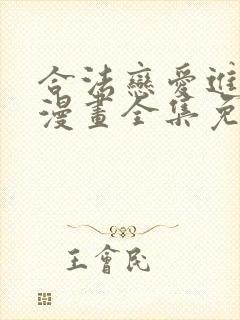 合法戀愛進
漫畫全集免
王會民